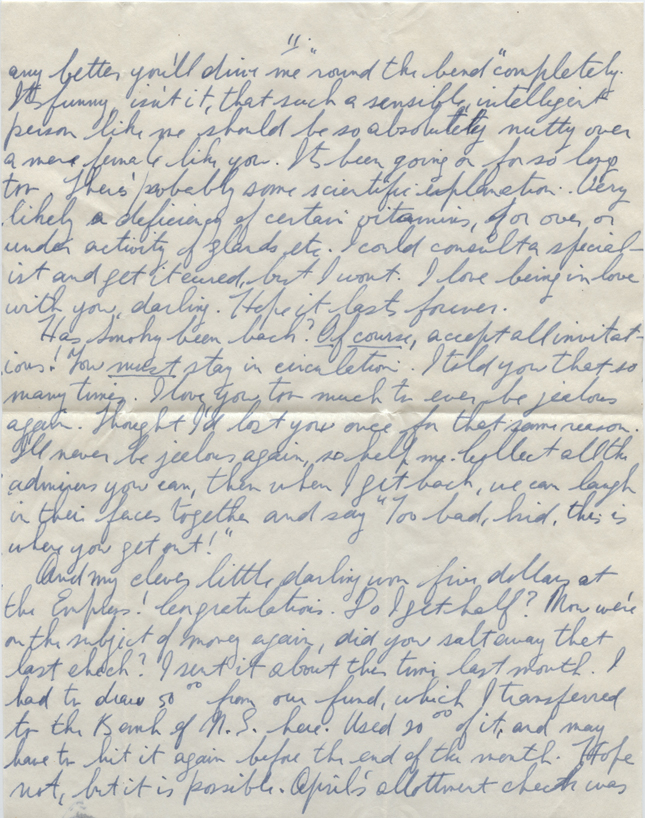 11.
any better you'll drive me "round the bend" completely.
It's funny, isn't it, that such a sensible, intelligent
person like me should be so absolutely nutty over
a mere female like you. It's been going on for so long
too. There's probably some scientific explanation. Very
likely a deficiency of certain vitamins, or over, or
under activity of glands, etc. I could consult a special-
ist and get it cured, but I won't. I love being in love
with you, darling. Hope it lasts forever.
Has Smoky been back? Of course, accept all invitat-
ions! You must stay in circulation. I told you that so
many times. I love you too much to ever be jealous
again. Thought I'd lost you once for that same reason.
I'll never be jealous again, so help me. Collect all the
admirers you can, then when I get back, we can laugh
in their faces together and say "Too bad, kid, this is
where you get out!"
And my clever little darling won five dollars at
the Empress! Congratulations. Do I get half? Now we're
on the subject of money again, did you salt away that
last check? I sent it about this time last month. I
had to draw 50 00 from our fund, which I transferred
to the Bank of N.S. here. Used 20 00 of it, and may
have to hit it again before the end of the month. Hope
not, but it is possible. April's allottment check was